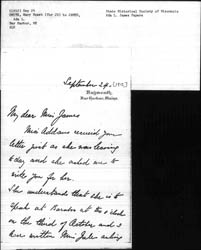 (1912) Sep 29
SMITH, Mary Rozet (for JA) to JAMES,
Ada L.
Bar Harbor, ME
State Historical Society of Wisconsin
Ada L. James Papers
September 29. [1912]
Bar Harbor, Maine
My dear Miss James
Miss Addams received your
letter just as she was leaving
today and she asked me to
write you for her.
She understands that she is to
speak at Baraboo at two o'clock
on the third of October and I
have written Miss Julia asking